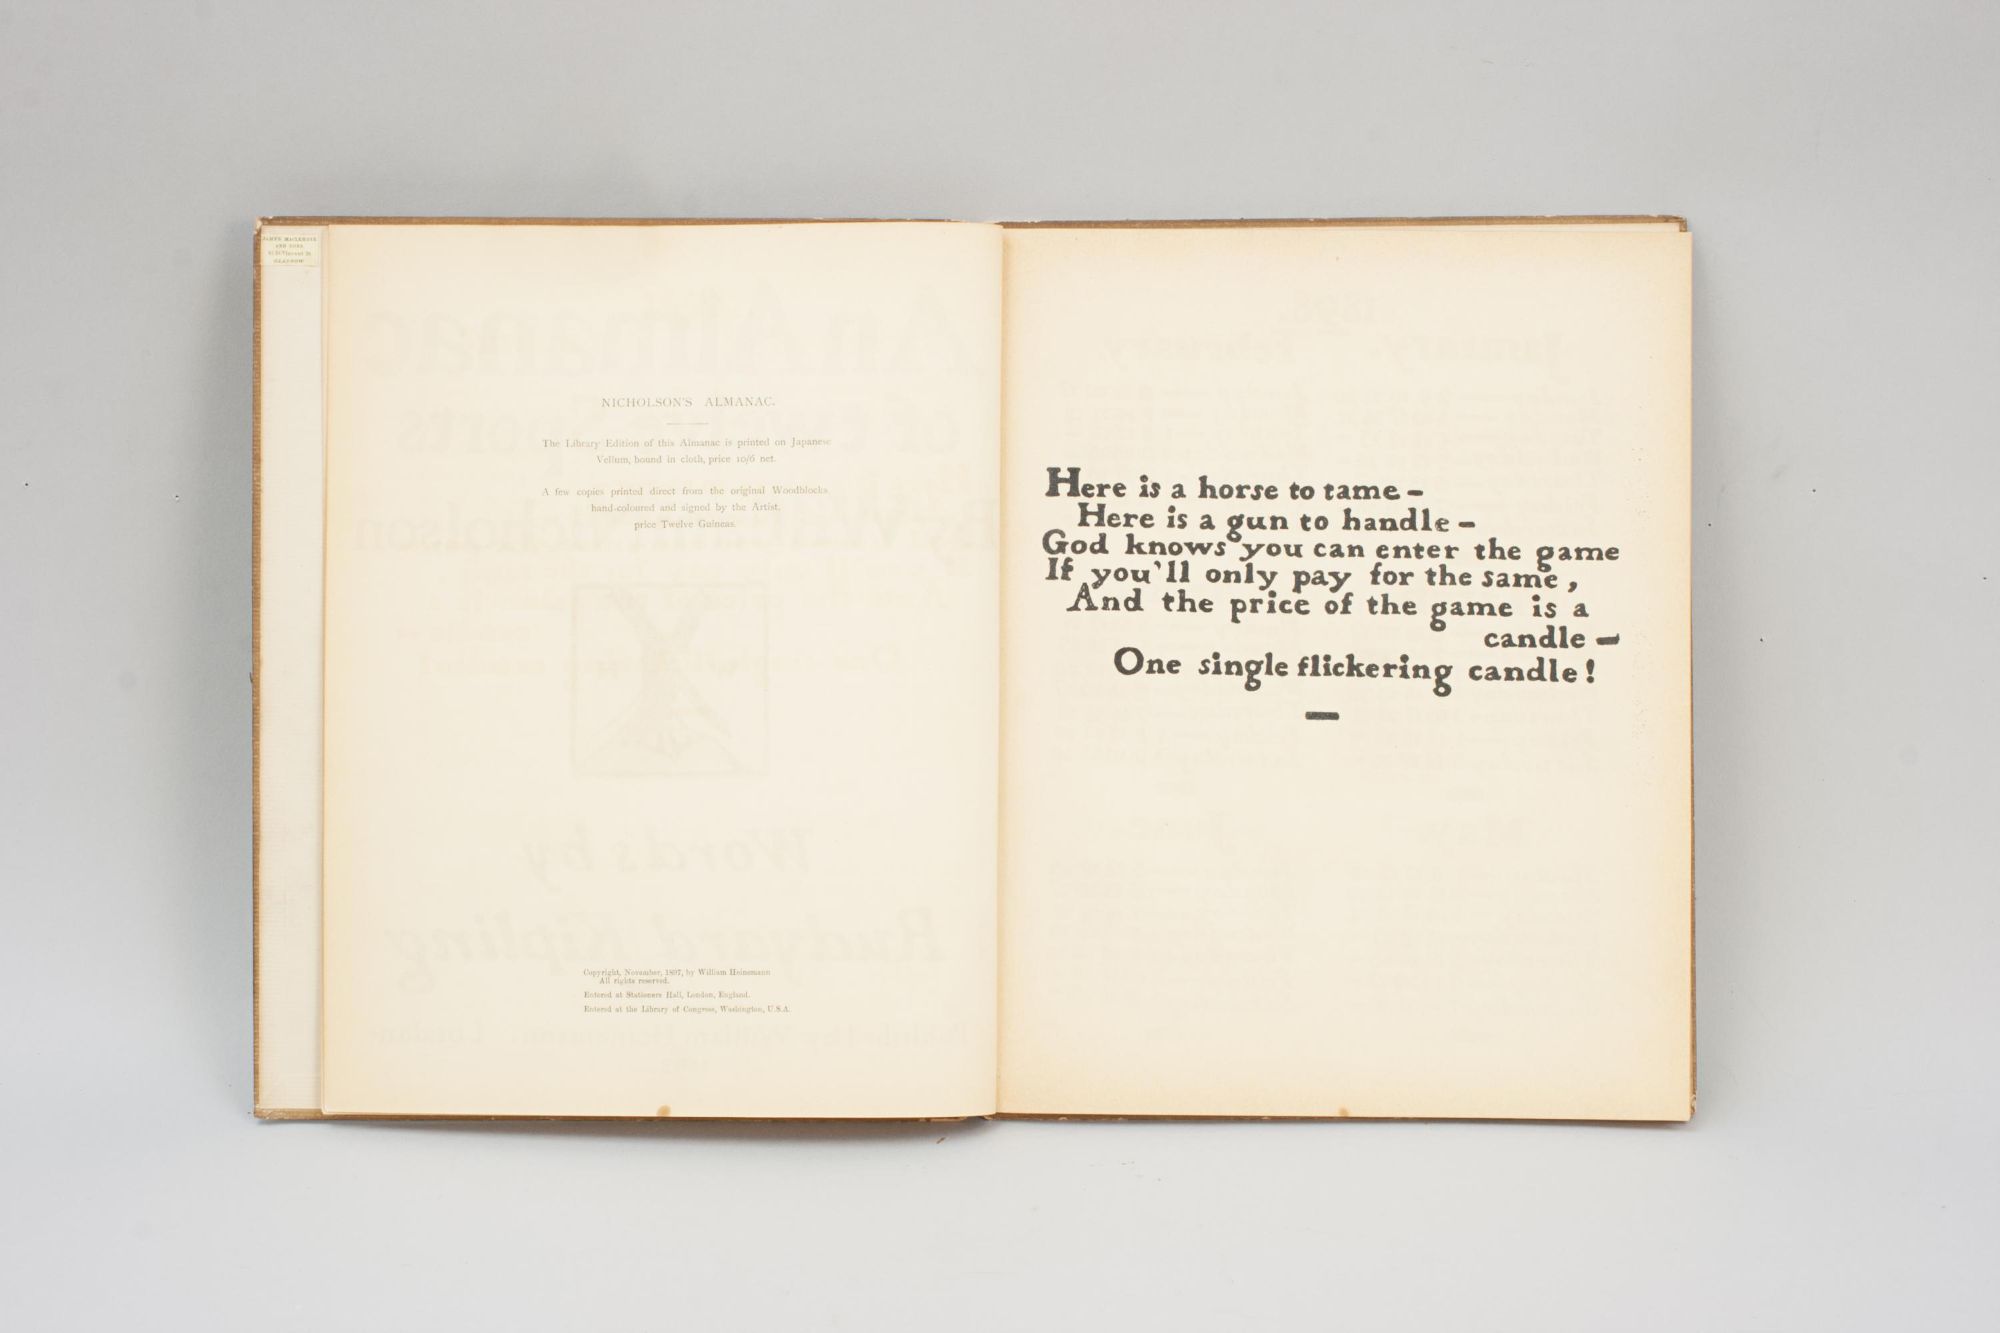 AND SONS,
GLASGOW
NICHOLSON'S ALMANAC.
The Library Edition of this Almanac is printed on Japanese
Vellum, bound in cloth, price 10/6 net.
A few copies printed direct from the original Woodblocks
hand-coloured and signed by the Artist,
price Twelve Guineas.
Copyright, November, 1897, by William Heinemann
All rights reserved.
Entered at Stationers Hall, London, England.
Entered at the Library of Congress, Washington, U.S.A.
Here is a horse to tame –
Here is a gun to handle –
God knows you can enter the game
If you'll only pay for the same,
And the price of the game is a
candle –
One single flickering candle!